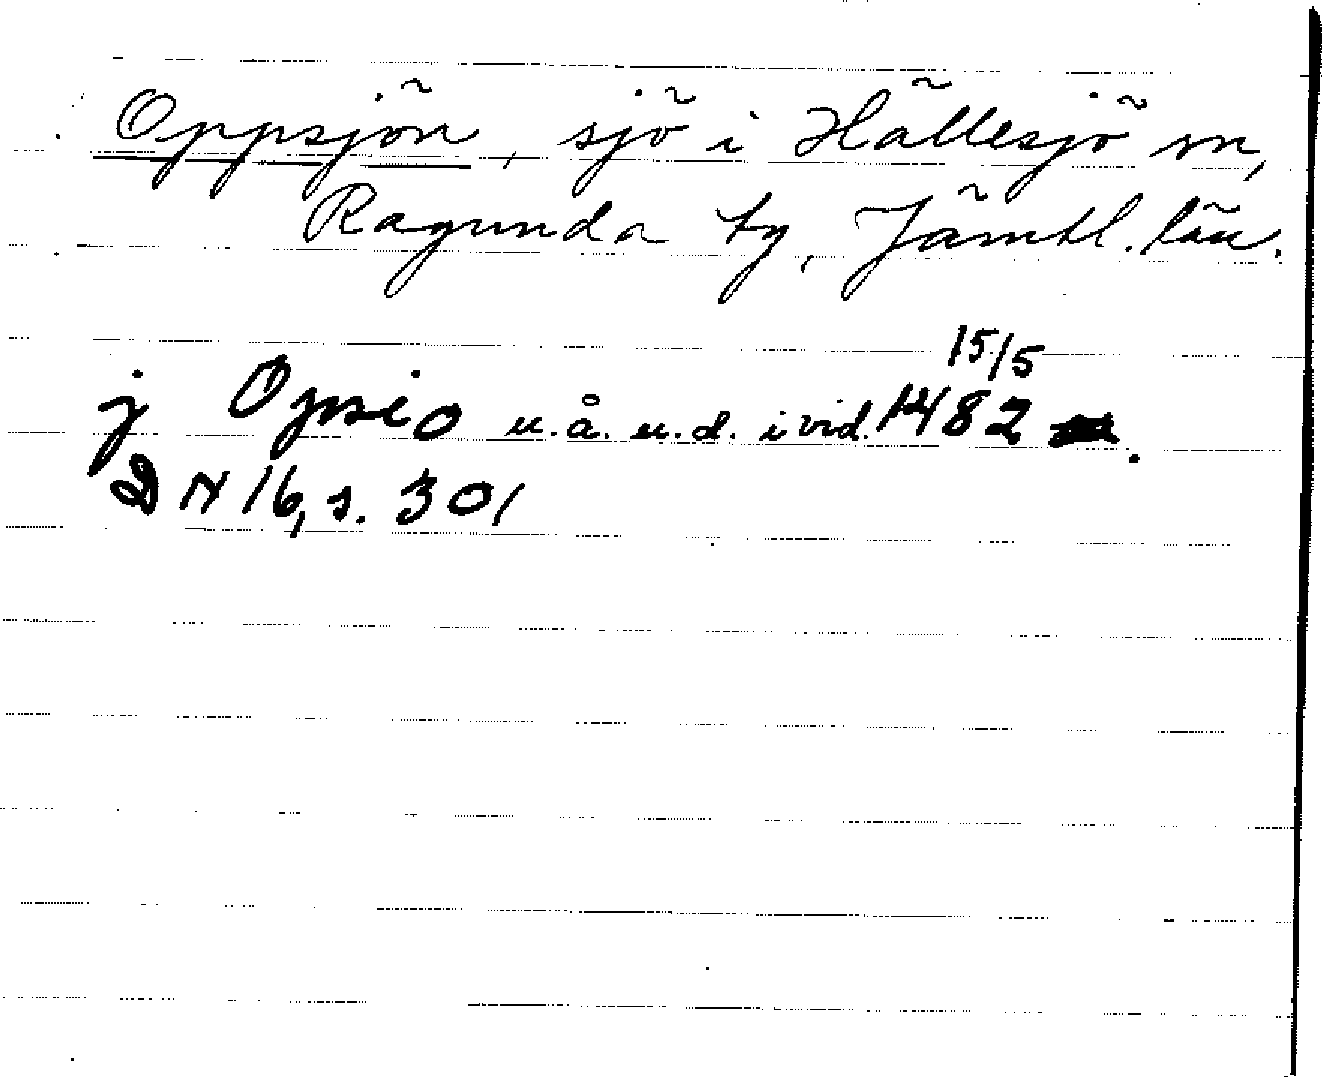 Oppsjön, sjö i Hällesjö sn,
Ragunda tg, Jämtl. län.
j Opsio u.å. u.d. i vid. 15/5 1482.
DN 16, s. 301